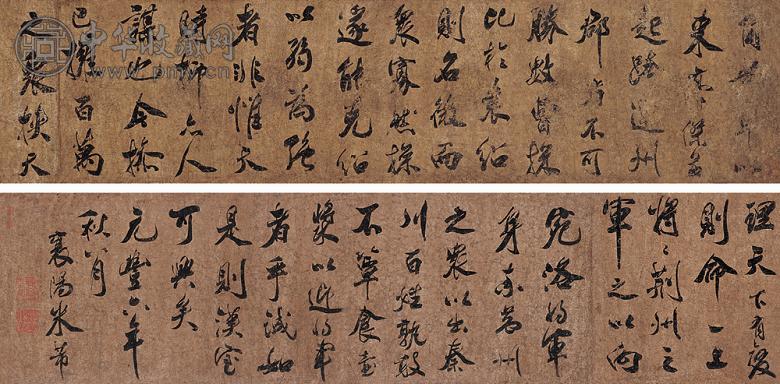 中华收藏网
自董卓以
來豪傑並
起跨連州
郡者不可
勝數曹操
比於袁紹
則名微而
衆寡然操
遂能克紹
以弱為強
者非惟天
時抑亦人
謀也今操
已擁百萬
之衆挾天
理天下有變
則命一上
將〻荊州之
軍之以向
宛洛將軍
身率益州
之衆以出秦
川百姓孰敢
不簞食壺
漿以迎將軍
者乎誠如
是則漢室
可興矣
元豐六年
秋八月
襄陽米芾